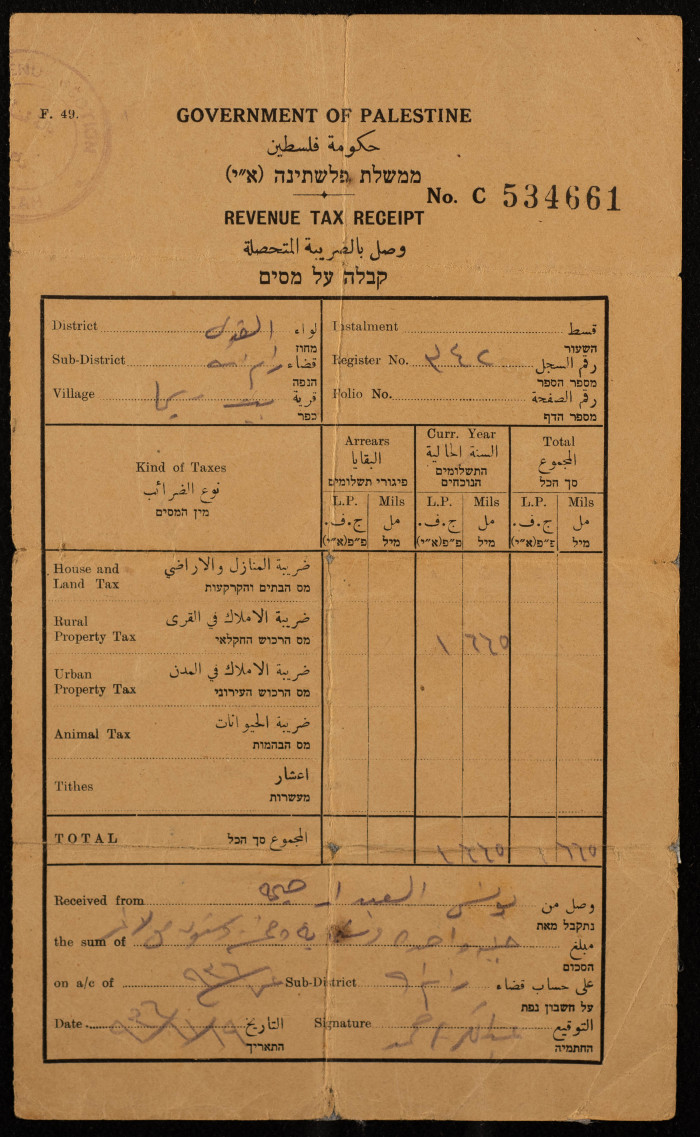 F. 49.
GOVERNMENT OF PALESTINE
حكومة فلسطين
ממשלת פלשתינה (א״י)
No. C 534661
REVENUE TAX RECEIPT
وصل بالضريبة المتحصلة
קבלה על מסים
District القدس لواء
מחוז
Sub-District رام الله قضاء
הנפה
Village بيت ريما قرية
כפר
Instalment قسط
השעור
Register No. ٣٤٢ رقم السجل
מספר הספר
Folio No. رقم الصفحة
מספר הדף
Kind of Taxes
نوع الضرائب
מין המסים
Arrears
البقايا
פיגורי תשלומים
Curr. Year
السنة الحالية
התשלומים
הנוכחים
Total
المجموع
סך הכל
L.P. Mils L.P. Mils L.P. Mils
ج.ف. مل ج.ف. مل ج.ف. مل
פ״פ(א״י) מיל פ״פ(א״י) מיל פ״פ(א״י) מיל
House and Land Tax ضريبة المنازل والاراضي
מס הבתים והקרקעות
Rural Property Tax ضريبة الاملاك في القرى
מס הרכוש החקלאי
١ ٦٦٥
Urban Property Tax ضريبة الاملاك في المدن
מס הרכוש העירוני
Animal Tax ضريبة الحيوانات
מס הבהמות
Tithes اعشار
מעשרות
TOTAL المجموع סך הכל
١ ٦٦٥ ١ ٦٦٥
Received from يونس العبد وصل من
נתקבל מאת
the sum of جنيه واحد مبلغ
הסכום
on a/c of ٩٣٦ Sub-District رام الله على حساب قضاء
על חשבון נפת
Date التاريخ Signature التوقيع
התאריך החתמיה